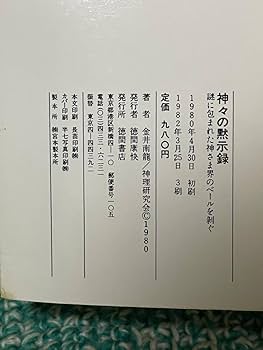 神々の黙示録
謎に包まれた神さま界のベールを剥ぐ
1980年4月30日 初刷
1982年3月25日 3刷
定価 九八〇円
著者 金井南龍/神理研究会©1980
発行者 徳間康快
発行所 徳間書店
東京都港区新橋四-一〇 郵便番号一〇五
電話(〇三)四三三・六二三一
振替 東京四-四四三九二
本文印刷 長苗印刷㈱
カバー印刷 半七写真印刷㈱
製本所 ㈱宮本製本所